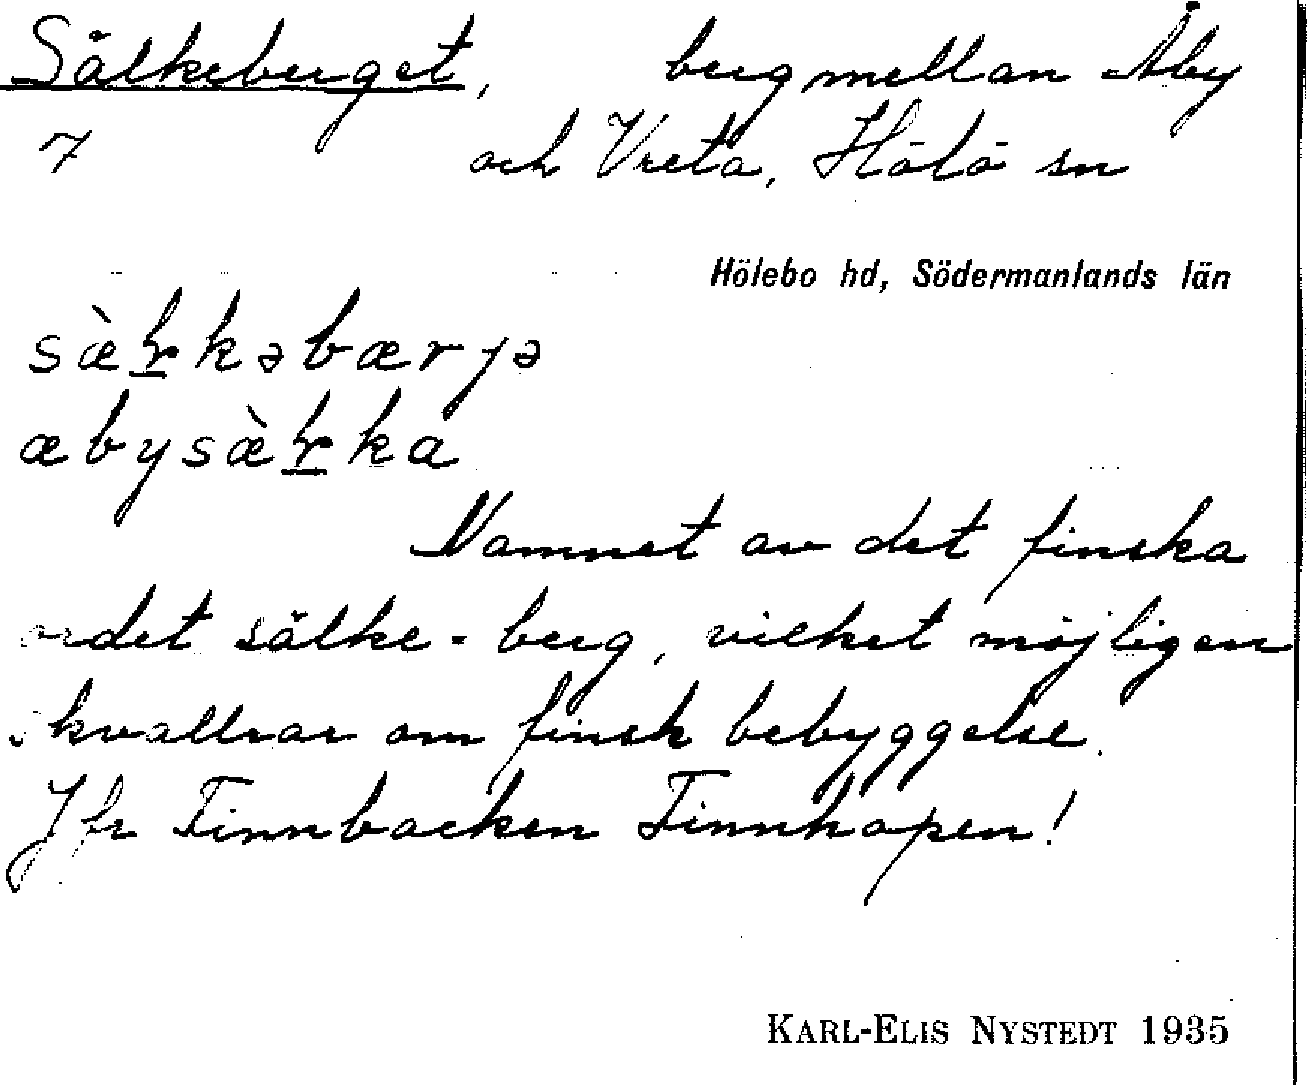 Sälkeberget, berg mellan Åby
7 och Vreta, Hölö sn
Hölebo hd, Södermanlands län
sæ̀ɽkəbærjə
æbysæ̀ɽka
Namnet av det finska
ordet sälke - berg, vilket möjligen
skvallrar om finsk bebyggelse.
Jfr Finnbacken Finnhopen!
KARL-ELIS NYSTEDT 1935